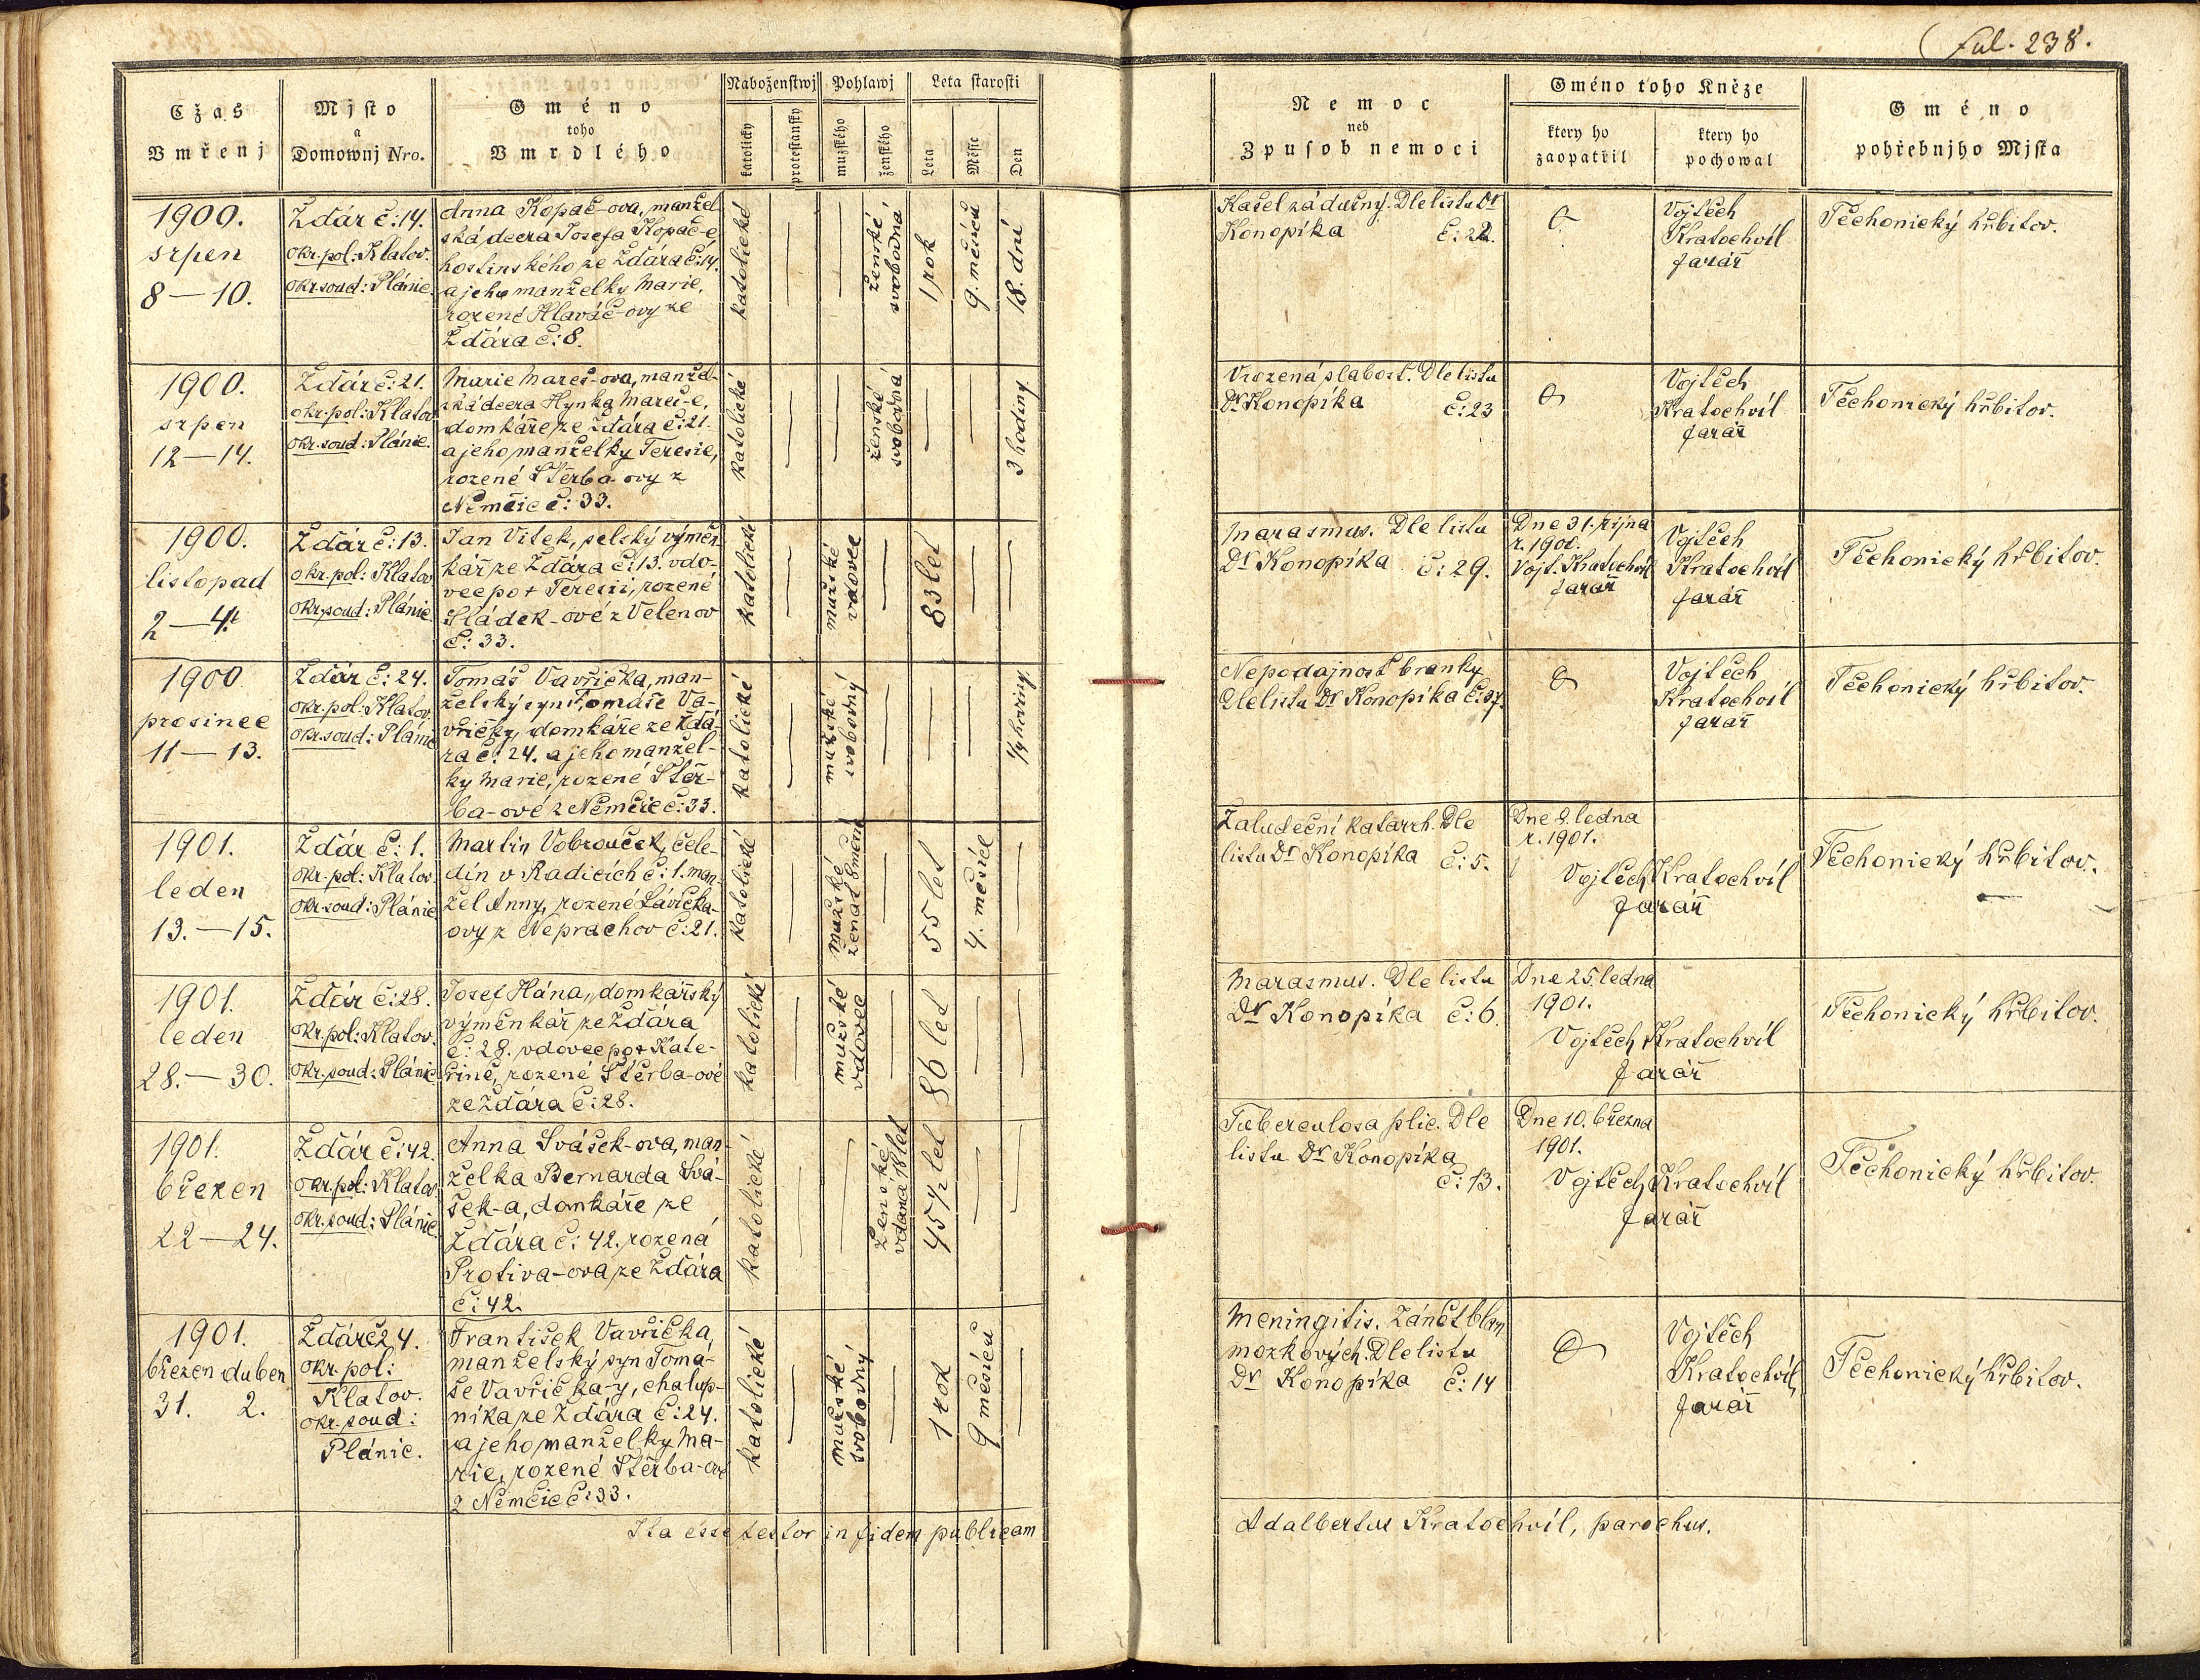 Fol. 238.
Cžas
Vmřenj
Mjsto
a
Domownj Nro.
Gméno
toho
Vmrdlého
Náboženstwj
katolicky
protestansky
Pohlawj
mužského
ženského
Leta starosti
Leta
Měsíc
Den
Nemoc
neb
Zpusob nemoci
Gméno toho Kněze
ktery ho
zaopatřil
ktery ho
pochowal
Gméno
pohřebnjho Mjsta
1900.
srpen
8—10.
Ždár č: 14.
okr. pol: Klatov.
okr. soud: Plánic.
Anna Kopač-ova, manžel-
ská dcera Josefa Kopač-e
hostinského ze Ždára č: 14.
a jeho manželky Marie,
rozené Hlaváč-ovy ze
Ždára č: 8.
katolické
ženské
svobodná
1 rok
9. měsíců
18. dní
Kašel zádušný. Dle listu Dr
Konopíka č: 22.
Vojtěch
Kratochvíl
farář
Těchonický hřbitov.
1900.
srpen
12—14.
Ždár č: 21.
okr. pol: Klatov
okr. soud: Plánic.
Marie Mareš-ova, manžel-
ská dcera Hynka Mareš-e,
domkáře ze Ždára č: 21.
a jeho manželky Teresie,
rozené Štěrba-ovy z
Němčic č: 33.
katolické
ženské
svobodná
3 hodiny
Vrozená slabost. Dle listu
Dr Konopíka č: 23
Vojtěch
Kratochvíl
farář
Těchonický hřbitov.
1900.
listopad
2—4.
Ždár č: 13.
okr. pol: Klatov
okr. soud: Plánic
Jan Vítek, selský výměn-
kář ze Ždára č: 13. vdo-
vec po + Teresii, rozené
Sládek-ové z Velenov
č: 33.
katolické
mužské
vdovec
83 let
Marasmus. Dle listu
Dr Konopíka č: 29.
Dne 31. října
r. 1900.
Vojt. Kratochvíl
farář
Vojtěch
Kratochvíl
farář
Těchonický hřbitov.
1900
prosinec
11—13.
Ždár č: 24.
okr. pol: Klatov.
okr. soud: Plánic
Tomáš Vavřička, man-
želský syn Tomáše Va-
vřičky, domkáře ze Ždá-
ra č: 24. a jeho manžel-
ky Marie, rozené Štěr-
ba-ové z Němčic č: 33.
katolické
mužské
svobodný
1/4 hodiny
Nepodajnost branky
Dle listu Dr Konopíka č: 37.
Vojtěch
Kratochvíl
farář
Těchonický hřbitov.
1901.
leden
13.—15.
Ždár č: 1.
okr. pol: Klatov.
okr. soud: Plánic
Martin Vobrouček, čele-
dín v Radicích č: 1. man-
žel Anny, rozené Lávička-
ovy z Neprachov č: 21.
katolické
mužské
ženat
55 let
4. měsíce
Žaludeční katarrh. Dle
listu Dr Konopíka č: 5.
Dne 9. ledna
r. 1901.
Vojtěch Kratochvíl
farář
Těchonický hřbitov.
1901.
leden
28.—30.
Ždár č: 28.
okr. pol: Klatov.
okr. soud: Plánic
Josef Hána, domkářský
výměnkář ze Ždára
č: 28. vdovec po + Kate-
řině, rozené Štěrba-ové
ze Ždára č: 28.
katolické
mužské
vdovec
86 let
Marasmus. Dle listu
Dr Konopíka č: 6.
Dne 25. ledna
1901.
Vojtěch Kratochvíl
farář
Těchonický hřbitov.
1901.
březen
22—24.
Ždár č: 42
okr. pol: Klatov
okr. soud: Plánic
Anna Svášek-ova, man-
želka Bernarda Svá-
šek-a, domkáře ze
Ždára č: 42. rozená
Protiva-ova ze Ždára
č: 42.
katolické
ženské
vdaná 18 let
45 1/2 let
Tuberculosa plic. Dle
listu Dr Konopíka
č: 13.
Dne 10. března
1901.
Vojtěch Kratochvíl
farář
Těchonický hřbitov.
1901.
březen duben
31. 2.
Ždár č 24.
okr. pol:
Klatov.
okr. soud:
Plánic.
František Vavřička,
manželský syn Tomá-
še Vavřička-y, chalup-
níka ze Ždára č: 24.
a jeho manželky Ma-
rie, rozené Štěrba-ové
z Němčic č: 33.
katolické
mužské
svobodný
1 rok
9 měsíců
Meningitis. Zánět blan
mozkových. Dle listu
Dr Konopíka č: 14
Vojtěch
Kratochvíl,
farář
Těchonický hřbitov.
Ita esse testor in fidem publicam
Adalbertus Kratochvíl, parochus.